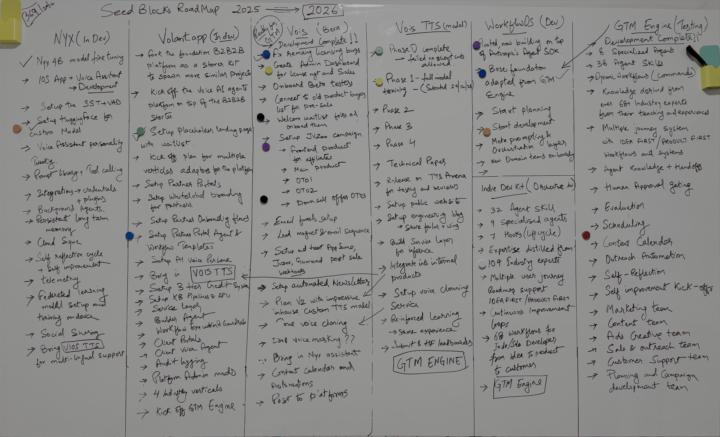 Seed Blocks RoadMap 2025 → 2026
NYX (In Dev)
Nyx 4B model fine tuning
→ iOS App + Voice Assistant
→ Development
→ Setup the STT + VAD
→ Setup Huggingface for
Custom Model
→ Voice Assistant personality
→ Prompt library + Tool calling
→ Integrating → credentials
+ plugins
→ Background Agents
→ Persistent long term
memory
→ Cloud Sync
→ Self reflection cycle
+ Self improvement
→ Telemetry
→ Federated learning
model setup and
training on device
→ Social Sharing
→ Bring VOIS TTS
for multi-lingual support
Volant app (In dev)
→ Fork the foundation B2B2B
platform as a starter kit
to spawn more similar projects
→ Kick off the Voice AI agents
platform on top of the B2B2B
starter
→ Setup Placeholder landing page
with waitlist
→ Kick off plan for multiple
verticals adapters for the platform
→ Setup Partner Portals
→ Setup whitelabel branding
for partners
→ Setup Partner Onboarding flows
→ Setup Partner Portal Agent &
Workflow Templates
→ Setup AI Voice Persona
→ Bring in VOIS TTS
→ Setup 3 tier Credit System
→ Setup KB Pipelines &
Service Layer
→ Builder Agent
→ Workflow
→ Client Portals
→ Client Voice Agent
→ Audit logging
→ Platform Admin mode
→ 4 Industry verticals
→ Kick Off GTM Engine
Vois (Beta)
Development Complete!!
→ Fix Remaining licensing bugs
→ Create Admin Dashboard
for License mgt and Sales
→ Onboard Beta testers
→ Connect & old product buyers
list for pre-sale
→ Welcome waitlist folks and
onboard them
→ Setup JVZoo campaign
→ frontend Product
for affiliates
→ Main product
→ OTO1
→ OTO2
→ Down sell offer OTO3
→ Email funnels setup
→ Lead magnet & email sequence
→ Setup automated Newsletters
→ Plan V2 with impressive
inhouse custom TTS model
→ Fine voice cloning
→ voice marking ??
→ Bring in Nyx assistant
→ Content calendar and
automations
→ Post to Platforms
Vois TTS (model)
Phase 0 complete
→ Phase 1 - full model
training
→ Phase 2
→ Phase 3
→ Phase 4
→ Technical Paper
→ Release on TTS Arena
for testing and reviews
→ Setup public website
→ Setup engineering blog
→ Build Service Layer
for inference
→ Integrate into internal
products
→ Setup voice cloning
Service
→ Reinforced Learning
→ same experience
→ Submit to HF leaderboards
GTM ENGINE
Workfluids (Dev)
Pivoted, now building on top
of Anthropic's Agent SDK
Base foundation
adapted from GTM
Engine
→ Start planning
→ Start development
→ Meta prompting &
Orchestration layer
→ New Domain teams onboarding
Indie Dev Kit (Objective is)
→ 32 Agent Skill
→ 9 Specialised agents
→ 7 Hooks (Lifecycle)
→ Expertise distilled from
109 Industry experts
→ Multiple user journey
Roadmaps support
IDEA FIRST / PRODUCT FIRST
→ Continuous Improvement
Loops
→ 68 Workflows for
Indie/Solo Developers
from idea to product
to customer
→ GTM Engine
GTM Engine (Testing)
→ Development Complete!!
→ 8 Specialised Agents
→ 38 Agent Skills
→ Dynamic Workflows (Commands)
→ Knowledge distilled from
over 68+ Industry experts
from their teaching and experiences
→ Multiple Journey System
with IDEA FIRST / PRODUCT FIRST
Workflows and Systems
→ Agent Knowledge + Handoffs
→ Human Approval gating
→ Evaluation
→ Scheduling
→ Content Calendar
→ Outreach Automation
→ Self-Reflection
→ Self improvement Kick-off
→ Marketing team
→ Content team
→ Ads Creative team
→ Sales & outreach team
→ Customer Support team
→ Planning and Campaign
development team